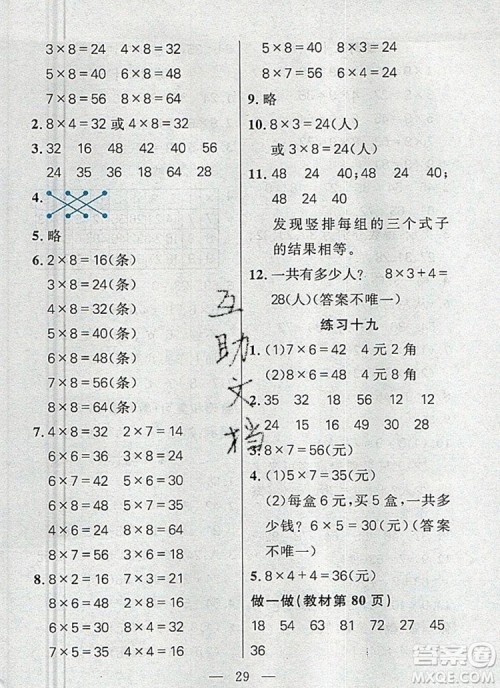 3×8=24 4×8=32
5×8=40 6×8=48
7×8=56 8×8=64
2. 8×4=32 或 4×8=32
3. 32 16 48 42 40 56
24 35 56 64 64 28
4.
5. 略
6. 2×8=16(条)
3×8=24(条)
4×8=32(条)
5×8=40(条)
6×8=48(条)
7×8=56(条)
8×8=64(条)
7. 4×8=32 2×7=14
6×6=36 5×8=40
5×7=35 4×7=28
7×7=49 6×8=48
3×6=18 8×8=64
8. 8×2=16 7×3=21
4×6=24 8×6=48
7×5=35 8×4=32
7×6=42 5×6=30
5×8=40 8×3=24
8×7=56 6×8=48
9. 略
10. 8×3=24(人)
或 3×8=24(人)
11. 48 24 40;48 24
40;48 24 40
发现竖排每组的三个式子
的结果相等。
12. 一共有多少人? 8×3+4=
28(人)(答案不唯一)
练习十九
1. (1)7×6=42 4元2角
(2)7×6=42
2. 35 32 15 48 30 12
24 54 16 40 36 49
3. 7×8=56(元)
4. (1)5×7=35(元)
(2)每盒6元,买5盒,一共多
少钱? 6×5=30(元)(答案
不唯一)
5. 8×4+4=36(元)
做一做(教材第80页)
18 54 63 81 72 45 27
36
互助文档
— 29 —
答案圈
MXQE.COM